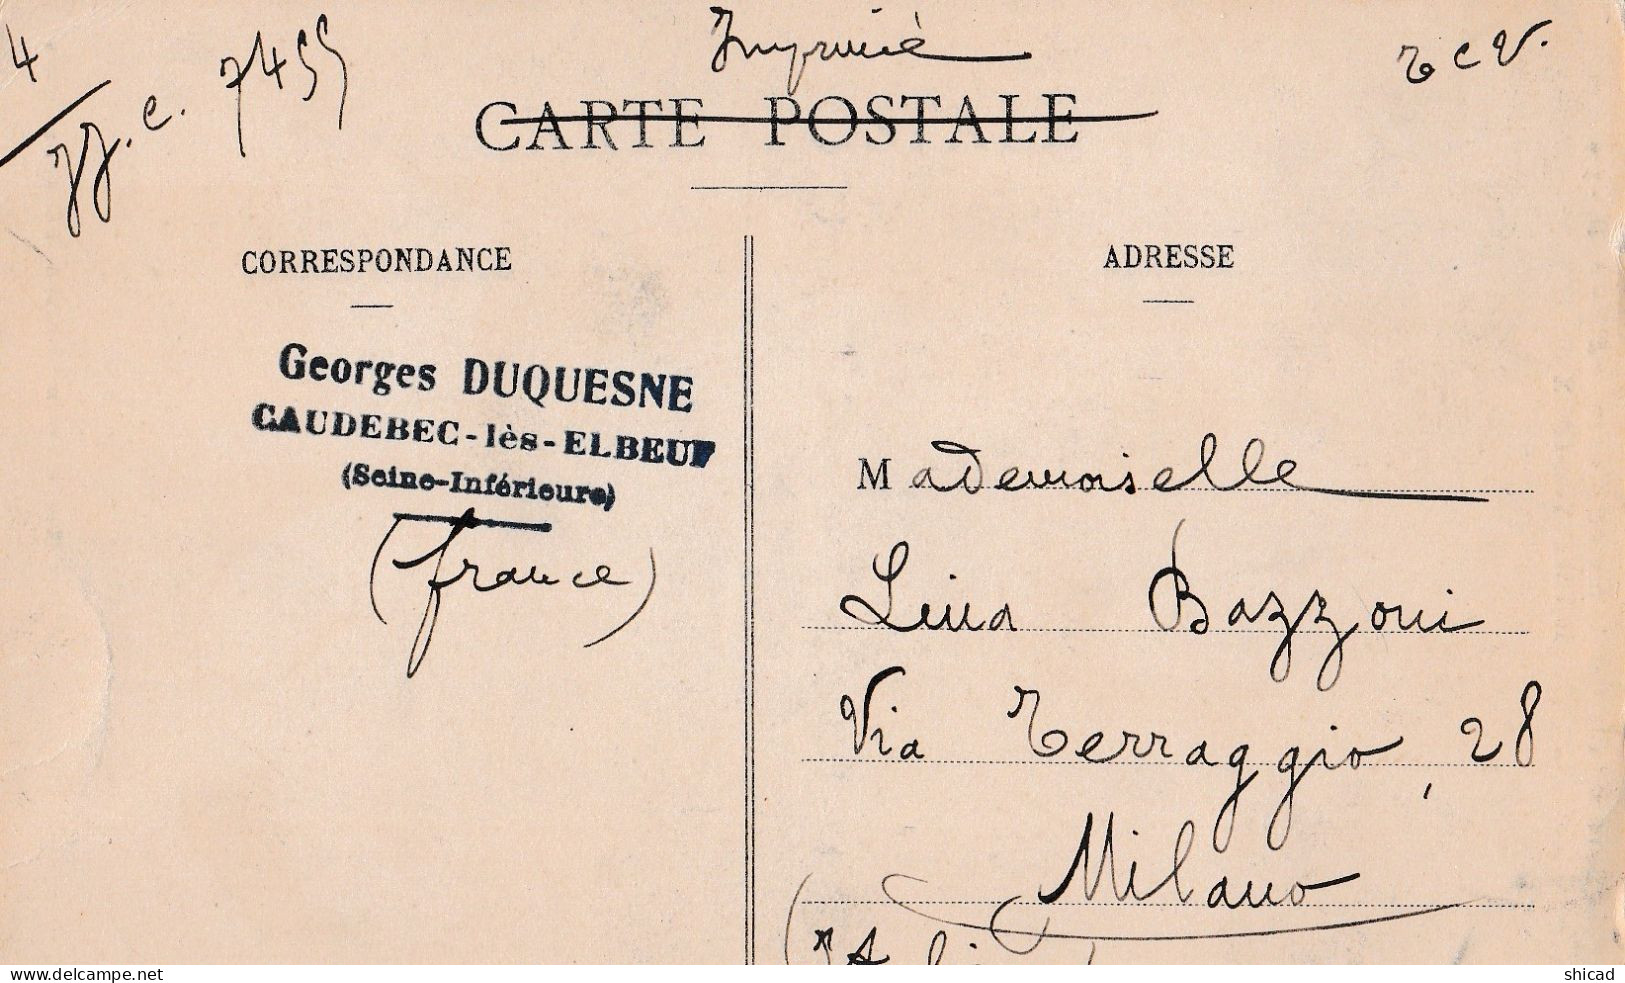 4
JJ.c. 7455
Imprimé
TCV.
CARTE POSTALE
CORRESPONDANCE
Georges DUQUESNE
CAUDEBEC-lès-ELBEUF
(Seine-Inférieure)
(france)
ADRESSE
Mademoiselle
Lina Bazzoni
Via Terraggio, 28
Milano
delcampe.net
shicad